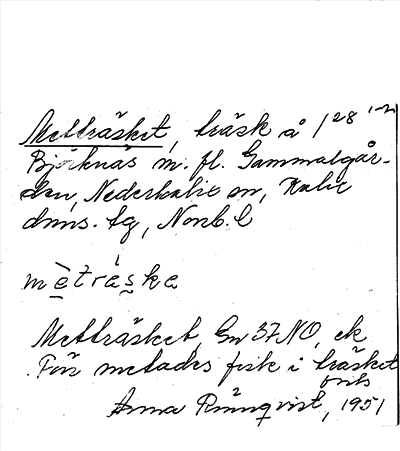 Metträsket, träsk å 128 1-2
Björknäs m. fl. Gammalgår-
den, Nederkalix sn, Kalix
dmns. tg, Nonb. l
mètráska
Metträsket, Gn 37 NO, ek
Förr metades fisk i träsket
Anna Rönnqvist, 1951